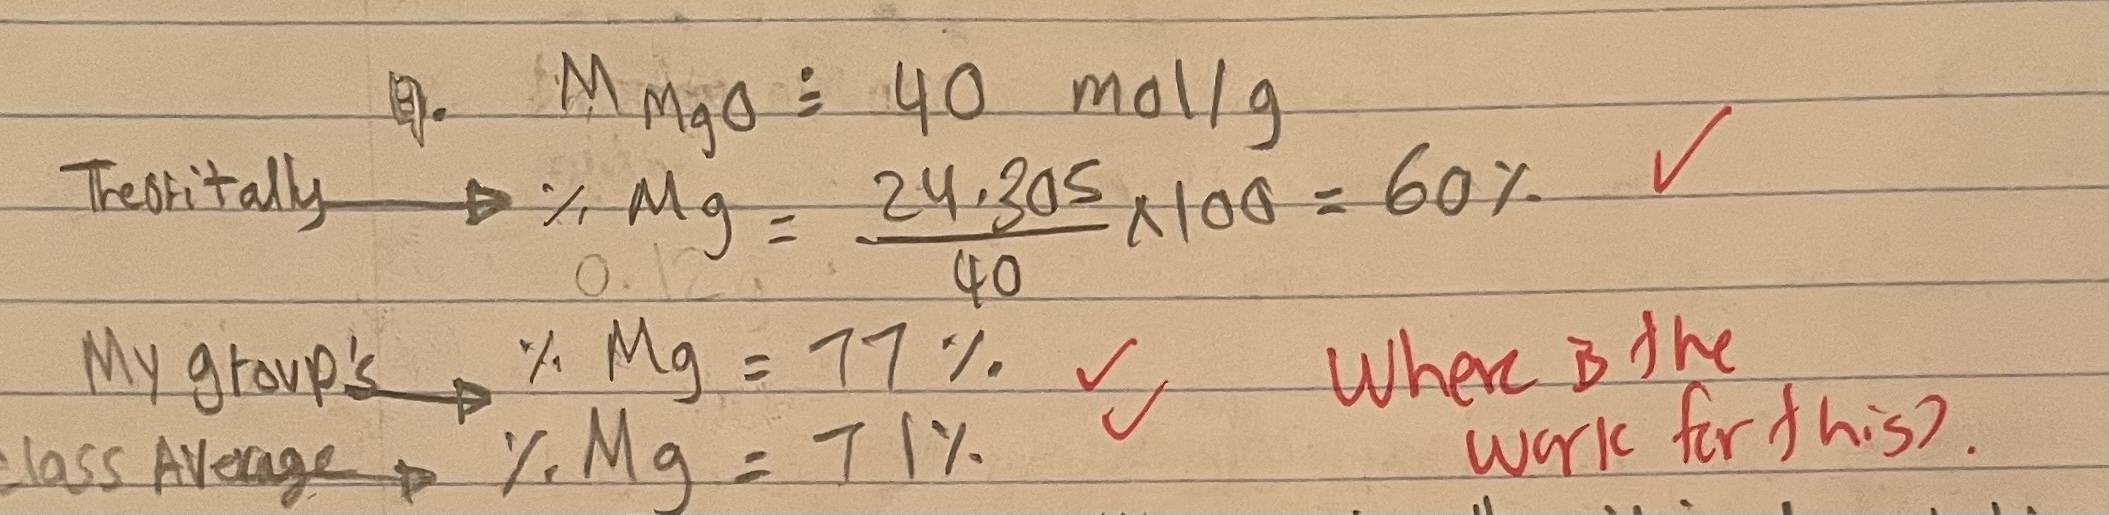 M MgO = 40 mol/g
Theoritally → % Mg = 24.305/40 x100 = 60% ✓
0.12
My group's → % Mg = 77% ✓ Where is the
class Average → % Mg = 71% ✓ work for this?